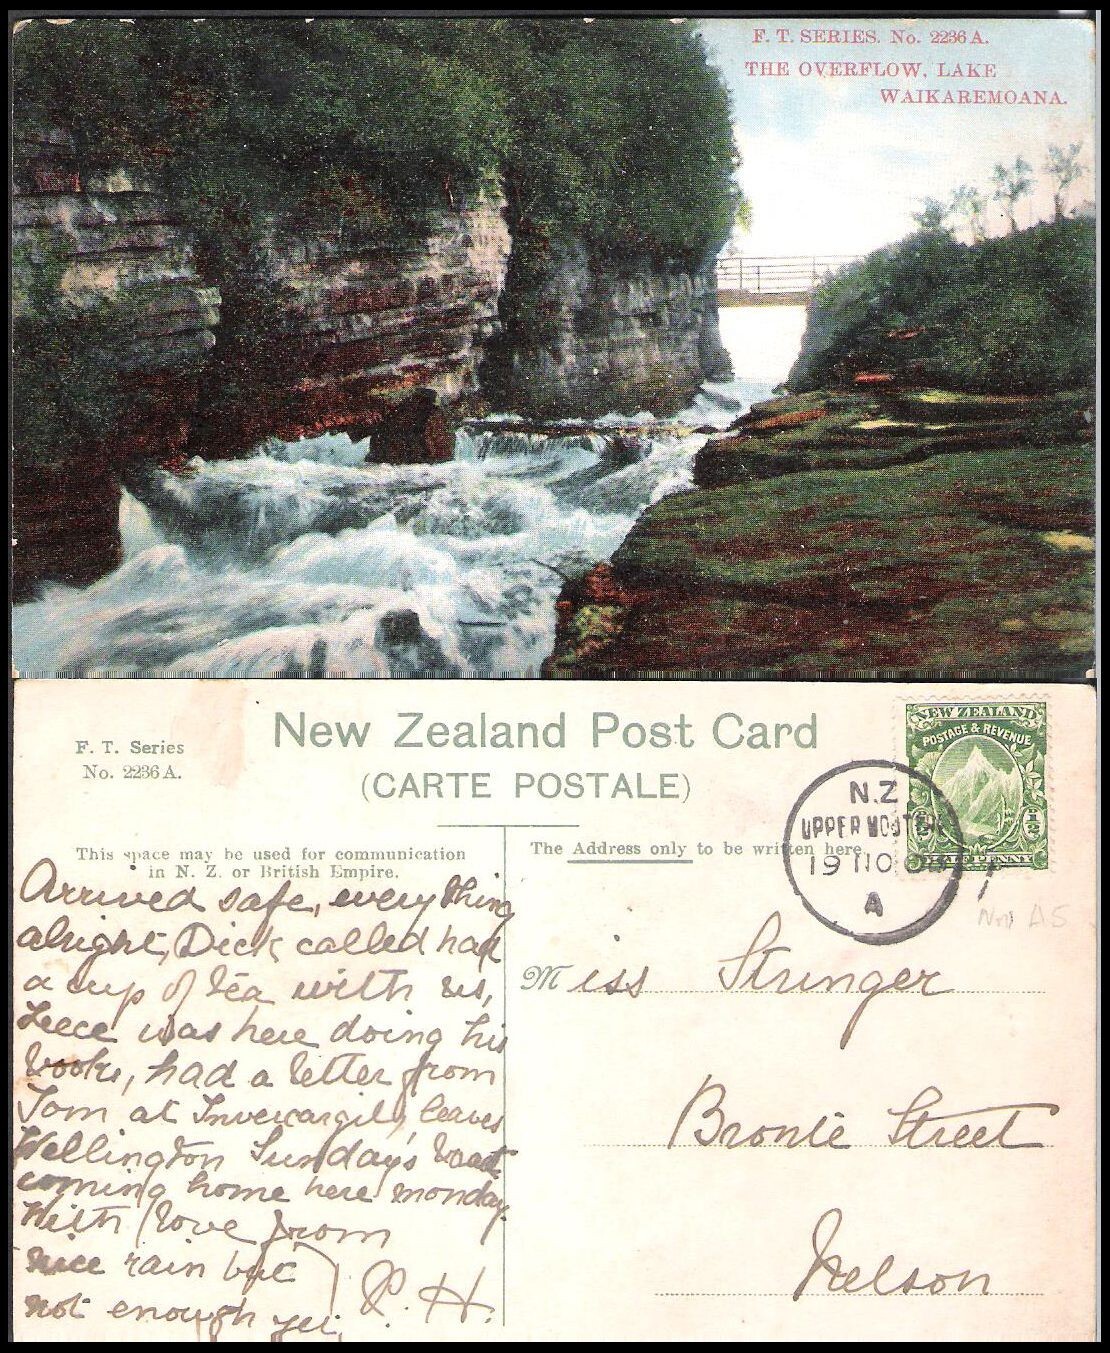 F. T. SERIES. No. 2236 A.
THE OVERFLOW, LAKE
WAIKAREMOANA.
F. T. Series
No. 2236 A.
New Zealand Post Card
(CARTE POSTALE)
NEW ZEALAND
POSTAGE & REVENUE
HALF PENNY
N.Z
UPPER
19 NO 08
A
This space may be used for communication
in N. Z. or British Empire.
The Address only to be written here.
Arrived safe, everything
alright, Dick called had
a cup of tea with us,
was here doing his
books, had a letter from
Tom at Invercargill, leaves
Wellington Sunday's boat
coming home here monday.
With love from
nice rain but
not enough yet.
P. H.
Miss Stringer
Bronte Street
Nelson